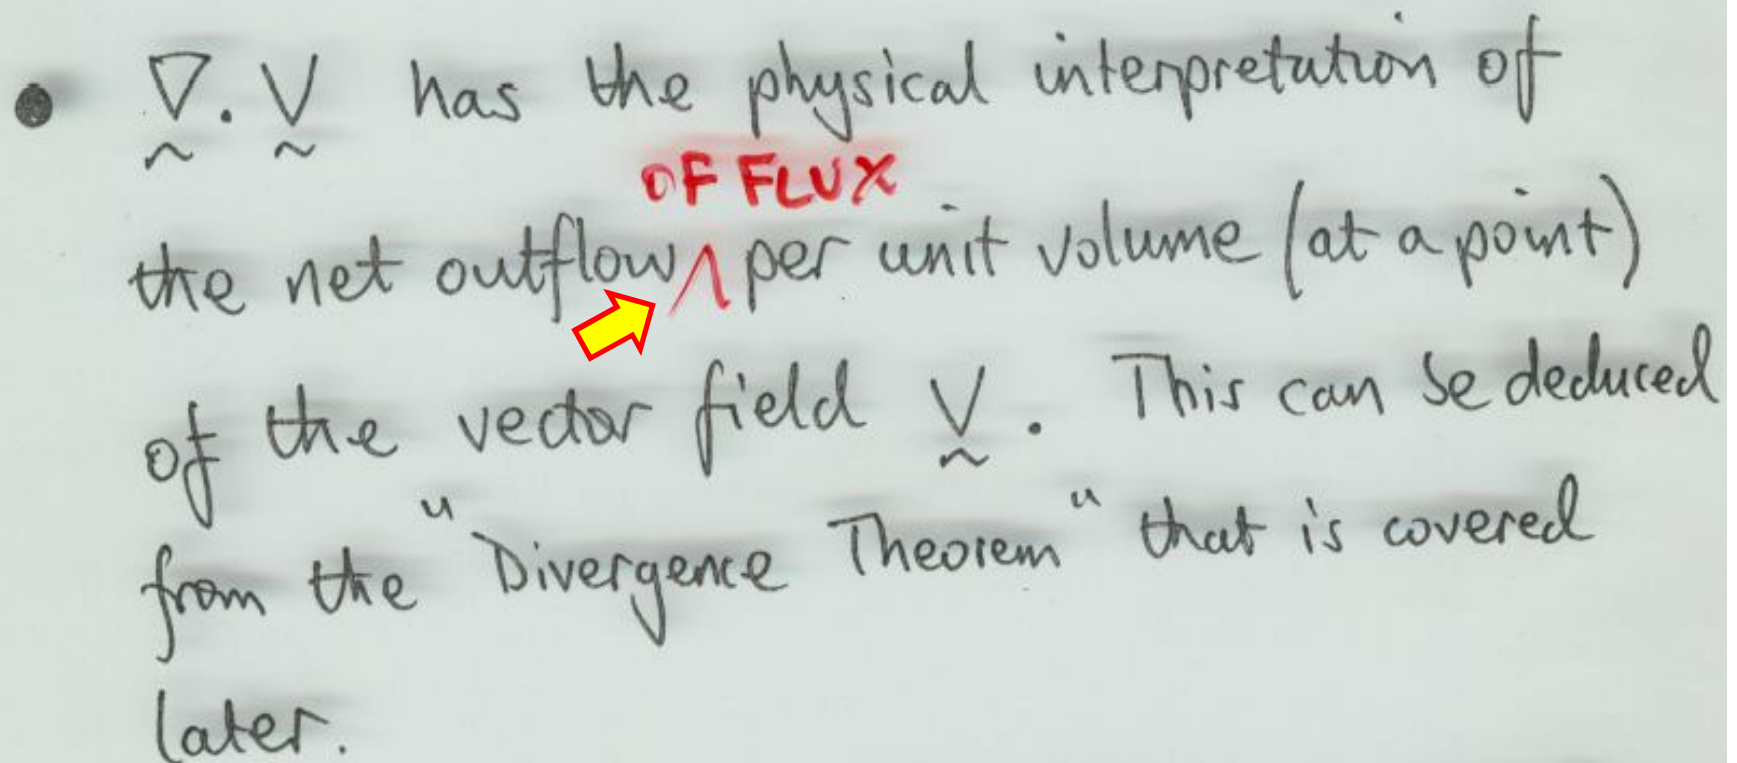 • ∇ . V has the physical interpretation of
OF FLUX
the net outflow ∧ per unit volume (at a point)
of the vector field V . This can be deduced
from the "Divergence Theorem" that is covered
later.